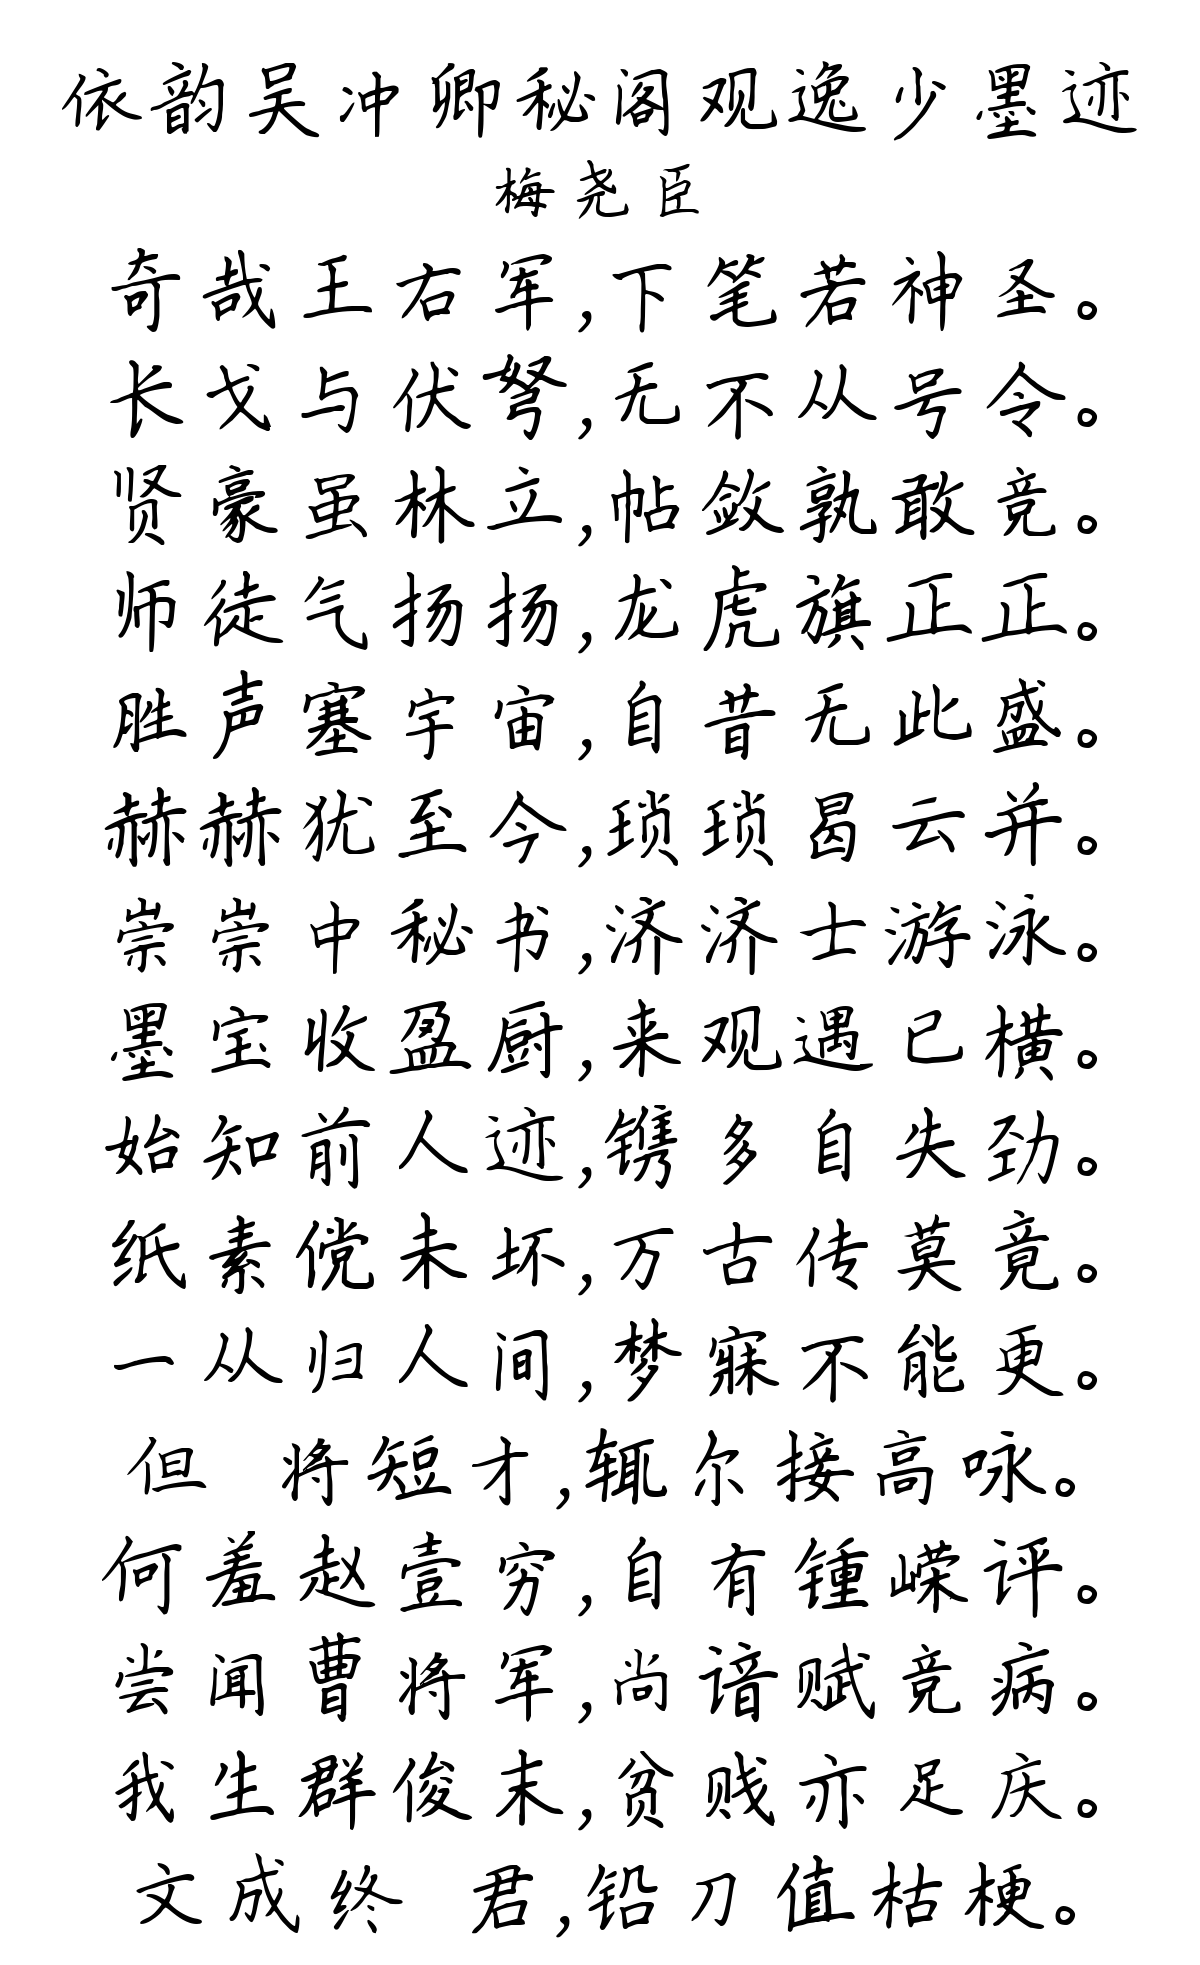 依韵吴冲卿秘阁观逸少墨迹
梅尧臣
奇哉王右军,下笔若神圣。
长戈与伏弩,无不从号令。
贤豪虽林立,帖敛孰敢竞。
师徒气扬扬,龙虎旗正正。
胜声塞宇宙,自昔无此盛。
赫赫犹至今,琐琐曷云并。
崇崇中秘书,济济士游泳。
墨宝收盈厨,来观遇已横。
始知前人迹,镌多自失劲。
纸素傥未坏,万古传莫竟。
一从归人间,梦寐不能更。
但 将短才,辄尔接高咏。
何羞赵壹穷,自有锺嵘评。
尝闻曹将军,尚谙赋竞病。
我生群俊末,贫贱亦足庆。
文成终 君,铅刀值枯梗。